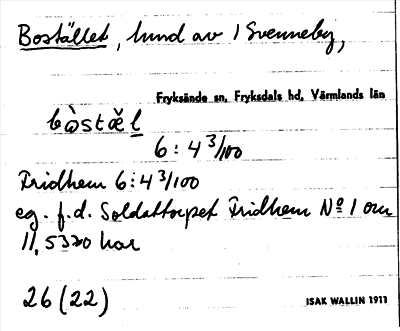 Bostället, lund av 1 Svenneby,
Fryksände sn, Fryksdals hd, Värmlands län
bòstæ̌l
6:4 3/100
Fridhem 6:4 3/100
eg. f.d. Soldattorpet Fridhem Nº 1 om
11,5320 har
26 (22)
ISAK WALLIN 1911